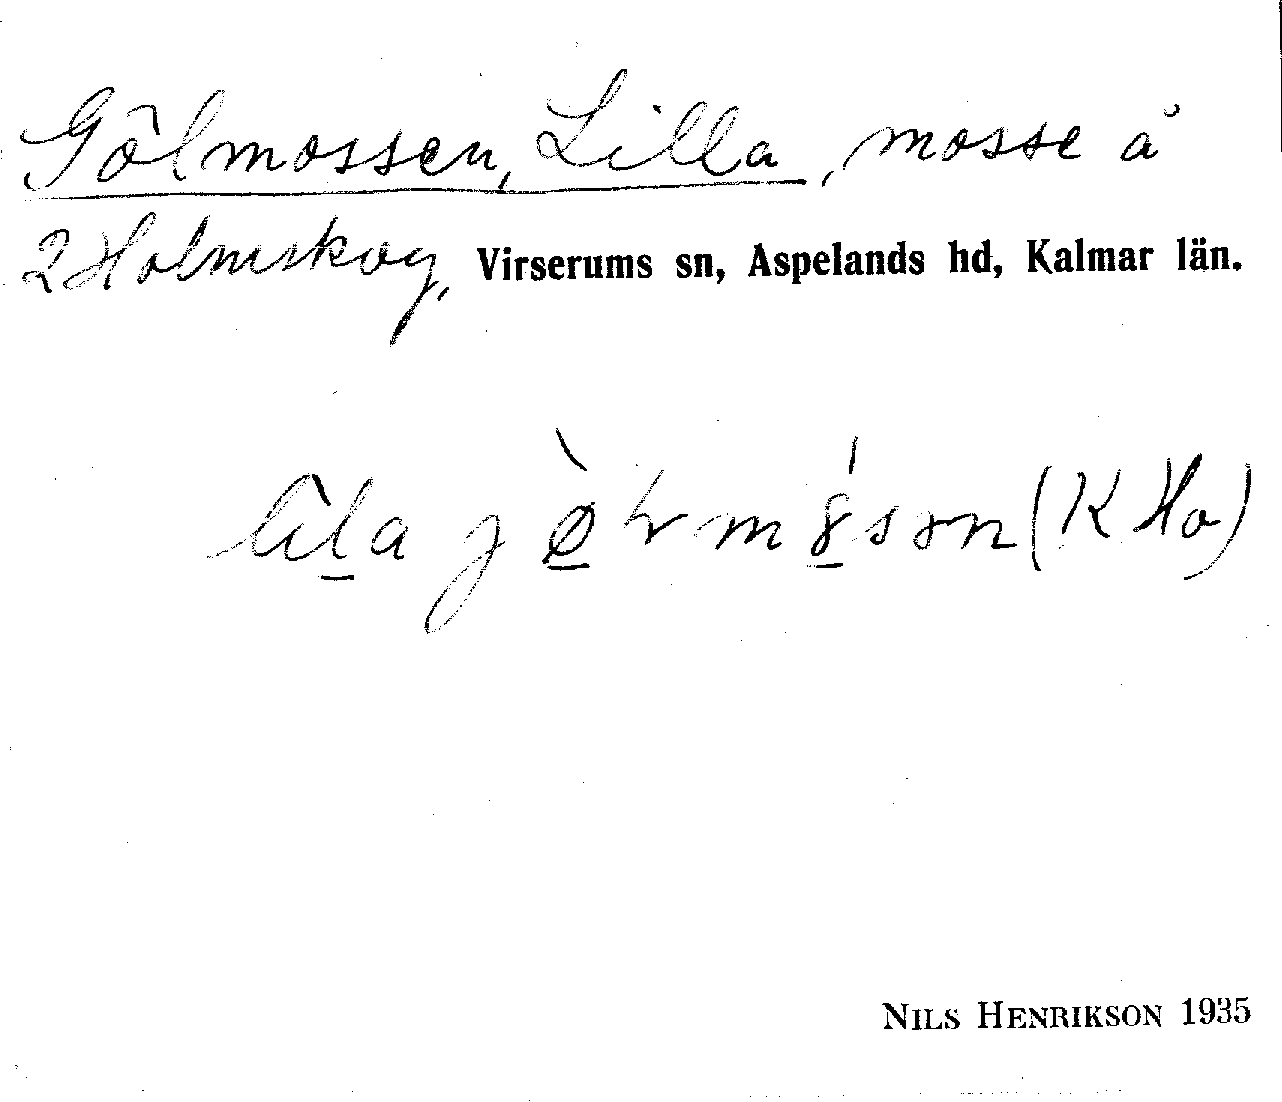 Gölmossen, Lilla, mosse å
2 Holmskog, Virserums sn, Aspelands hd, Kalmar län.
(K Ho)
NILS HENRIKSON 1935